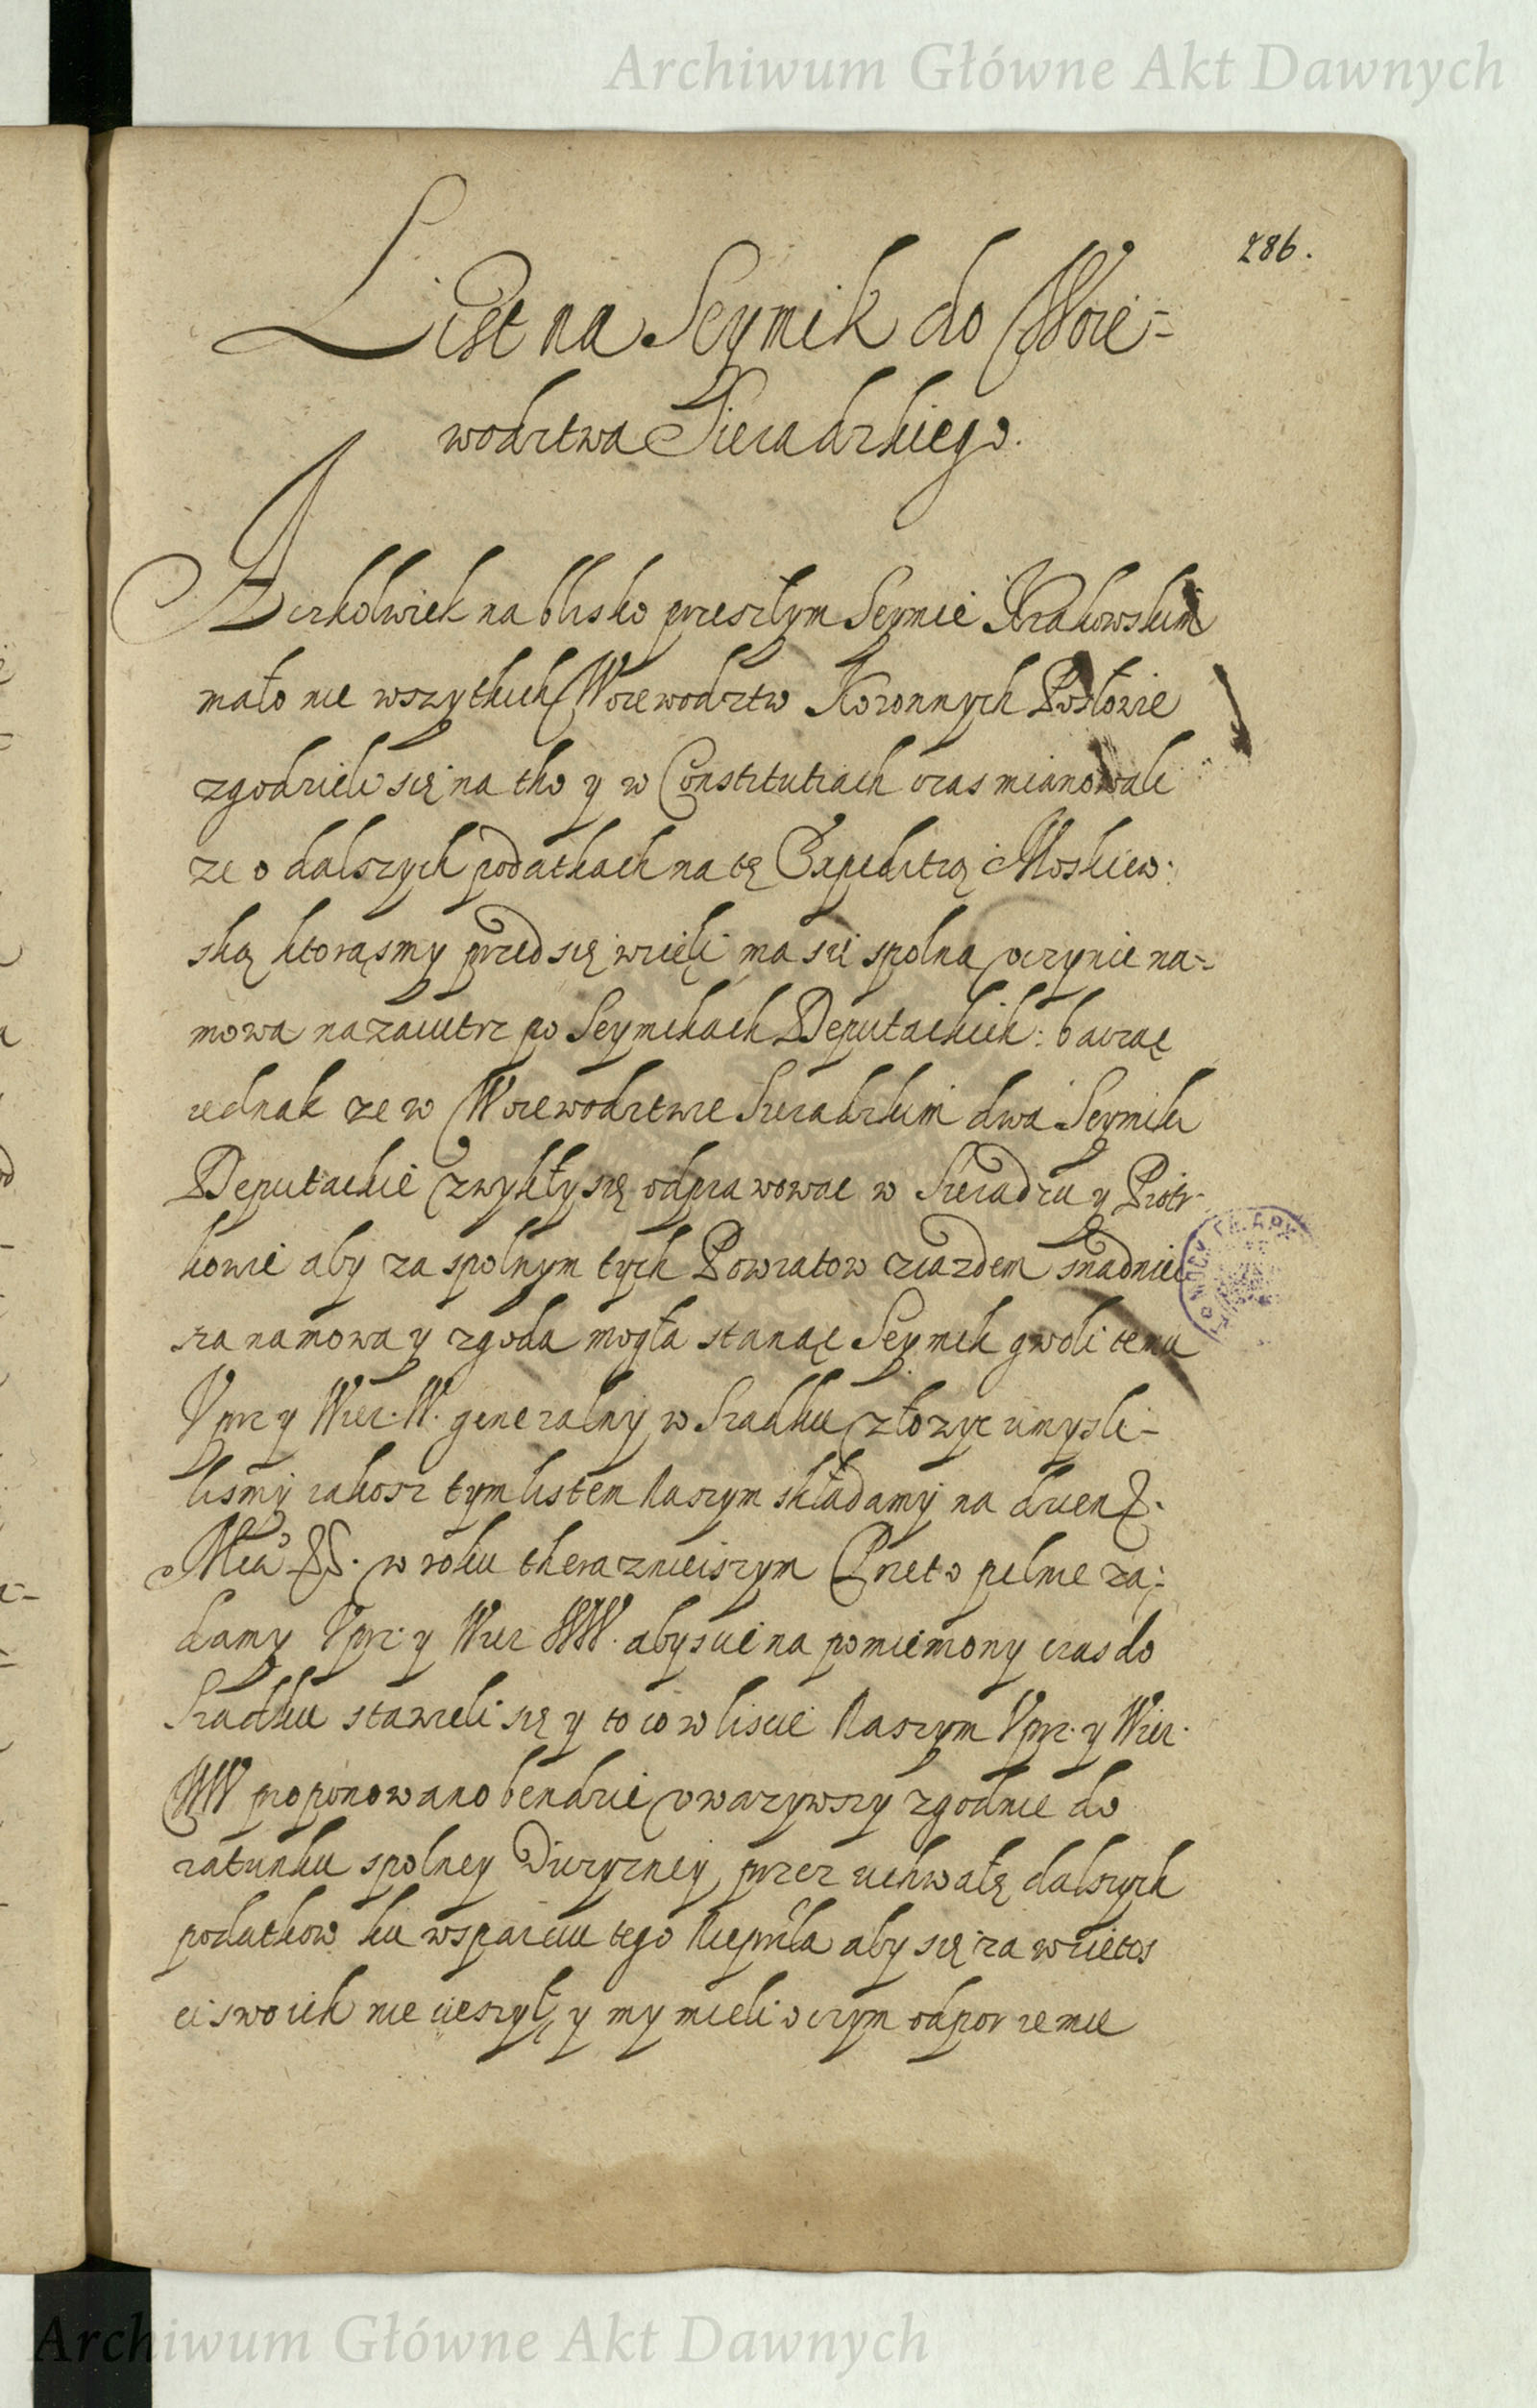 Archiwum Główne Akt Dawnych
286.
List na Seymik do Woie-
wodztwa Sieradzkiego.
Aczkolwiek na blisko przeszłym Seymie Krakowskim
mało nie wszytkich Woiewodztw Koronnych Posłowie
zgodzieli się na tho y w Constitutiach czas mianowali
ze o dalszych podatkach na tę Expeditią Moskiew-
ską ktorąsmy przed się wzięli ma sie spolna oczynic na-
mowa nazaiutrz po Seymikach Deputackich: bacząc
iednak ze w Woiewodztwie Sieradzkim dwa Seymiki
Deputackie zwykły się odprawowac w Sieradzu y Piotr-
kowie aby za spolnym tych Powiatow ziazdem snadniei
sza namowa y zgoda mogła stanąc Seymik gwoli temu
Uprz y Wier. W. generalny w Szadku złozyc umysli-
lismy iakosz tym listem Naszym składamy na dzien
w roku theraznieiszym Przeto pilnie zą-
damy Uprz. y Wier WW. abyscie na pomieniony czas do
Szadku stawieli się y to co w liscie Naszym Uprz. y Wier.
WW proponowano bendzie uwazywszy zgodnie do
ratunku spolney Oiczyzney przez uchwałę dalszych
podatkow ku wsparciu tego Nieprzła aby się zawziętos
ci swoich nie cieszył, y my mieli o czym odpor iemu
Archiwum Główne Akt Dawnych